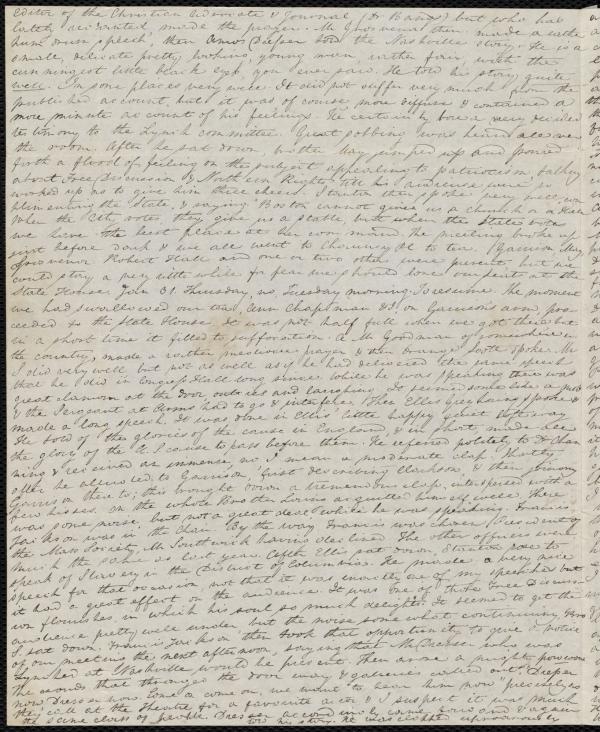 Editor of the Christian Advocate & Journal, (Dr Bangs) but who has
lately accounted, made the prayer. Mr Grosvenor then made a rather
hum drum speech, then Amos Dresser told the Nashville story. He is a
small, delicate pretty looking, young man, rather fair, with the
cunningest little black eyes, you ever saw. He told his story quite
well. In some places very well. It did not suffer very much from the
published account, but it was of course more diffuse & contained a
more minute account of his feelings. He certainly bore a very decided
testimony to the Lynch committee. Great sobbing was heard all over
the room. After he sat down, brother May jumped up and poured
forth a flood of feeling on the subject appealing to patriotism, talking
about Free Discussion & Northern Rights, till his audience were so
worked up as to give him three cheers. Stanton then spoke very well, com
plimenting the State, & saying Boston cannot give us a church or a Hall
When the City votes, they give us a stable, but when the State votes
we have the best place at her command. The meeting broke up
just before dark & we all went to Chauncy Pl to tea. Garrison, May,
Grosvenor Robert Hall and one or two others were present but we
could stay a very little while for fear we should lose our seats at the
State House. Jan 31. Thursday, no, Tuesday morning. To resume. The moment
we had swallowed our tea, Ann Chapman & I, on Garrison's arm, pro
ceeded to the State House. It was not half full when we got there but
in a short time it filled to suffocation. A Mr Goodman of somewhere in
the country, made a rather mediocre prayer & then Orange Scott spoke. Mr
S did very well but not as well as if he had delivered the same speech
that he did in Congress Hall long since. While he was speaking there was
great clamor at the door outcries and laughing. It seemed some like a mob
& the Sergeant at Arms had to go & interfere. Then Ellis Gray Loring spoke &
made a long speech. It was done in Ellis' little happy quiet soft way
He told of the glories of the cause in England, & in short, made all
the glory of the A. S. cause to pass before them. He referred politely to Dr Chan
ning & received an immense no I mean a moderate clap. Shortly
after he alluded to Garrison, first describing Clarkson, & then joining
Garrison there to; this brought down a tremendous clap, interspersed with a
few hisses. On the whole Brother Loring acquitted himself well. There
was some noise, but not a great deal while he was speaking. Francis
Jackson was in the Chair. By the way Francis was chosen President of
the Mass Society, Mr Southwick having declined. The other officers were
much the same as last year. After Ellis sat down, Stanton rose to
speak of Slavery in the District of Columbia. He made a very nice
speech for that occasion, not that it was exactly one of my speeches but
it had a great effect on the audience. It was one of those Free Discuss
ion flourishes, in which his soul so much delights. It seemed to get the
audience pretty well under but the noise some what continuing Bro
S. sat down. Francis Jackson then took that opportunity to give a notice
of our meeting the next afternoon, saying that Mr Dresser who was
Lynched at Nashville would be present. Then arose a mighty pow wow
the crowds that thronged the door way & galleries called out "Dresser
now Dresser now come or come on, we want to hear him now" precisely as
they call at the theatre for a favourite actor & I suspect it was much
the same class of people. Dresser accordingly came forward & again
told his story. He was clapped uproariously